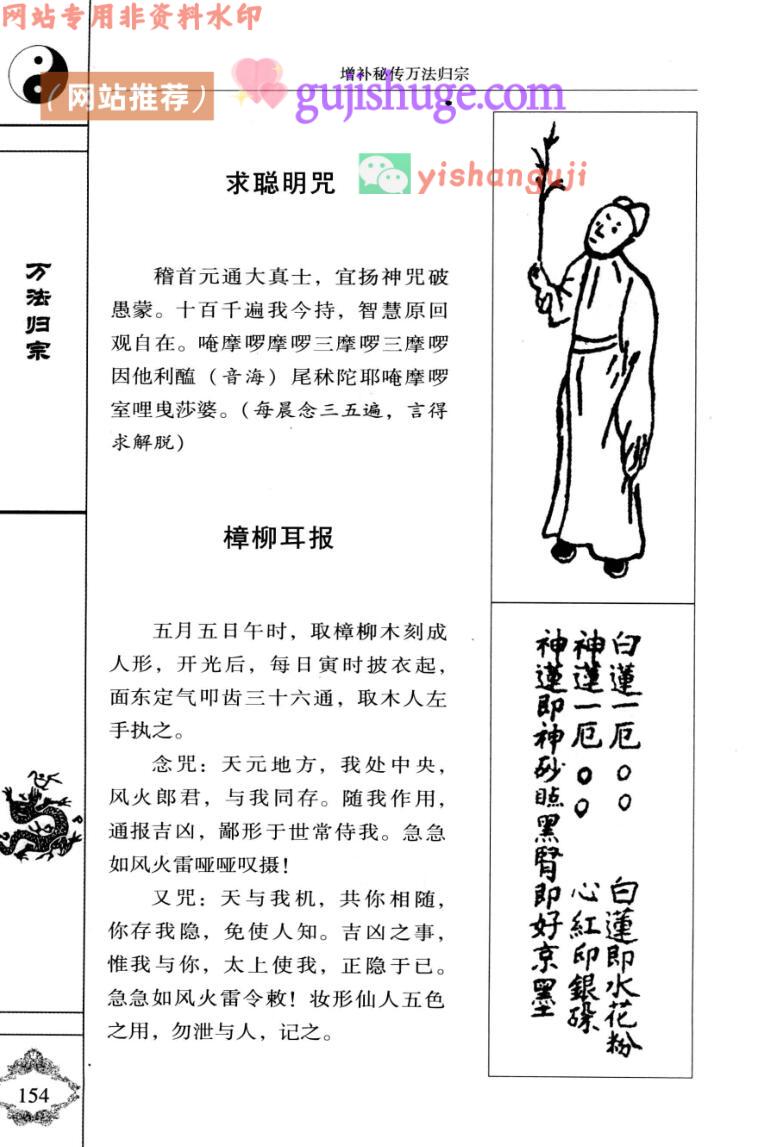 网站专用非资料水印
增补秘传万法归宗
（网站推荐）
gujishuge.com
求聪明咒
yishanguji
万法归宗
稽首元通大真士，宜扬神咒破
愚蒙。十百千遍我今持，智慧原回
观自在。唵摩啰摩啰三摩啰三摩啰
因他利醢（音海）尾秫陀耶唵摩啰
室哩曳莎婆。（每晨念三五遍，言得
求解脱）
樟柳耳报
五月五日午时，取樟柳木刻成
人形，开光后，每日寅时披衣起，
面东定气叩齿三十六通，取木人左
手执之。
念咒：天元地方，我处中央，
风火郎君，与我同存。随我作用，
通报吉凶，鄙形于世常侍我。急急
如风火雷哑哑叹摄！
又咒：天与我机，共你相随，
你存我隐，免使人知。吉凶之事，
惟我与你，太上使我，正隐于已。
急急如风火雷令敕！妆形仙人五色
之用，勿泄与人，记之。
白蓮一厄〇〇 白蓮即水花粉
神蓮一厄〇〇 心紅印銀硃
神蓮即神砂 黑腎即好京墨
154